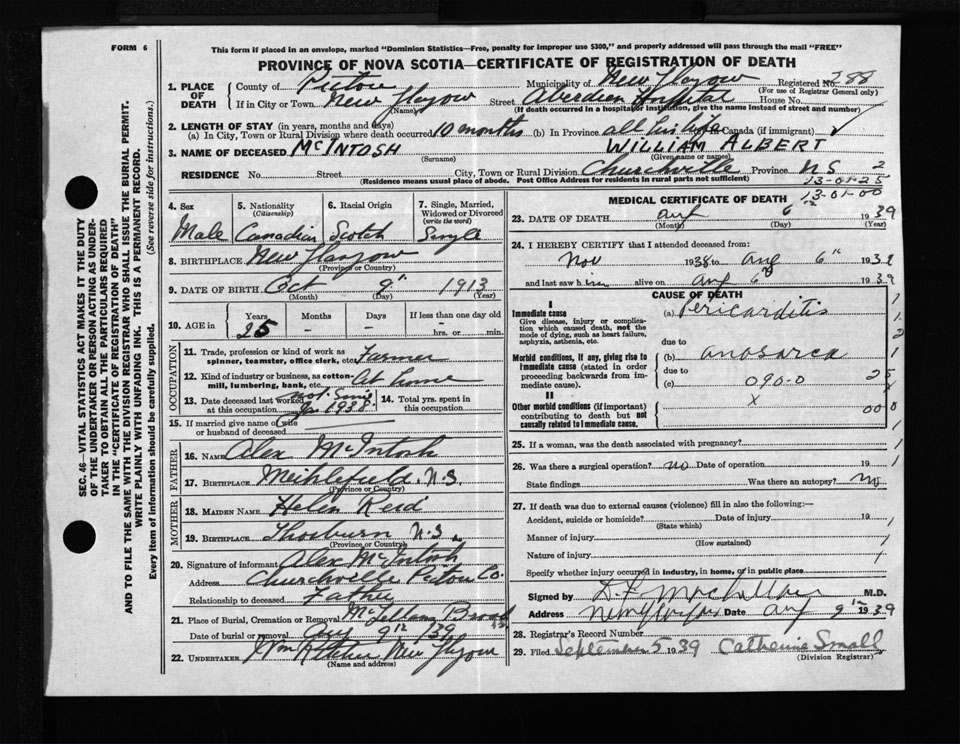 FORM 6
This form if placed in an envelope, marked "Dominion Statistics—Free, penalty for improper use $300," and properly addressed will pass through the mail "FREE"
PROVINCE OF NOVA SCOTIA—CERTIFICATE OF REGISTRATION OF DEATH
SEC. 46—VITAL STATISTICS ACT MAKES IT THE DUTY
OF THE UNDERTAKER OR PERSON ACTING AS UNDER-
TAKER TO OBTAIN ALL THE PARTICULARS REQUIRED
IN THE "CERTIFICATE OF REGISTRATION OF DEATH"
AND TO FILE THE SAME WITH THE DIVISION REGISTRAR WHO SHALL ISSUE THE BURIAL PERMIT.
WRITE PLAINLY WITH UNFADING INK. THIS IS A PERMANENT RECORD.
Every item of information should be carefully supplied. (See reverse side for instructions.)
1. PLACE OF DEATH
County of Pictou Municipality of New Glasgow Registered No. 288
(For use of Registrar General only)
If in City or Town New Glasgow Street Aberdien Hospital House No.
(Name) (If death occurred in a hospital or institution, give the name instead of street and number)
2. LENGTH OF STAY (in years, months and days)
(a) In City, Town or Rural Division where death occurred 10 months (b) In Province all his life Canada (if immigrant)
3. NAME OF DECEASED McINTOSH WILLIAM ALBERT
(Surname) (Given name or names)
RESIDENCE No. Street City, Town or Rural Division Churchville Province NS 2
(Residence means usual place of abode. Post Office Address for residents in rural parts not sufficient)
13-01-25
13-01-00
4. Sex 5. Nationality (Citizenship) 6. Racial Origin 7. Single, Married, Widowed or Divorced (write the word)
Male Canadian Scotch Single
8. BIRTHPLACE New Glasgow
(Province or Country)
9. DATE OF BIRTH Oct 9" 1913
(Month) (Day) (Year)
10. AGE in Years Months Days If less than one day old
25 – – hrs. or min.
OCCUPATION
11. Trade, profession or kind of work as spinner, teamster, office clerk, etc. Farmer
12. Kind of industry or business, as cotton-mill, lumbering, bank, etc. At home
13. Date deceased last worked at this occupation not since 1938
14. Total yrs. spent in this occupation
15. If married give name of wife or husband of deceased
FATHER
16. Name Alex McIntosh
17. BIRTHPLACE N.S.
(Province or Country)
MOTHER
18. MAIDEN NAME Helen Reid
19. BIRTHPLACE Thorburn N.S.
(Province or Country)
20. Signature of informant Alex McIntosh
Address Churchville Pictou Co.
Relationship to deceased Father
21. Place of Burial, Cremation or Removal McLellans Brook
Date of burial or removal Aug 9th /39
22. UNDERTAKER Wm New Glasgow
(Name and address)
MEDICAL CERTIFICATE OF DEATH
23. DATE OF DEATH Aug 6 1939
(Month) (Day) (Year)
24. I HEREBY CERTIFY that I attended deceased from:
Nov 1938 to Aug 6th 1939
and last saw him alive on Aug 6th 1939
CAUSE OF DEATH
I
Immediate cause
Give disease, injury or complication which caused death, not the mode of dying, such as heart failure, asphyxia, asthenia, etc.
(a) Pericarditis
due to
Morbid conditions, if any, giving rise to immediate cause (stated in order proceeding backwards from immediate cause).
(b) anosarca
due to
(c) 090-0
x
II
Other morbid conditions (if important) contributing to death but not causally related to immediate cause.
25. If a woman, was the death associated with pregnancy?
26. Was there a surgical operation? no Date of operation 19
State findings Was there an autopsy? No
27. If death was due to external causes (violence) fill in also the following:—
Accident, suicide or homicide? Date of injury 19
(State which)
Manner of injury
(How sustained)
Nature of injury
Specify whether injury occurred in industry, in home, or in public place
Signed M.D.
Address New Glasgow Date Aug 9th 1939
28. Registrar's Record Number
29. Filed September 5 1939 Catherine Small
(Division Registrar)